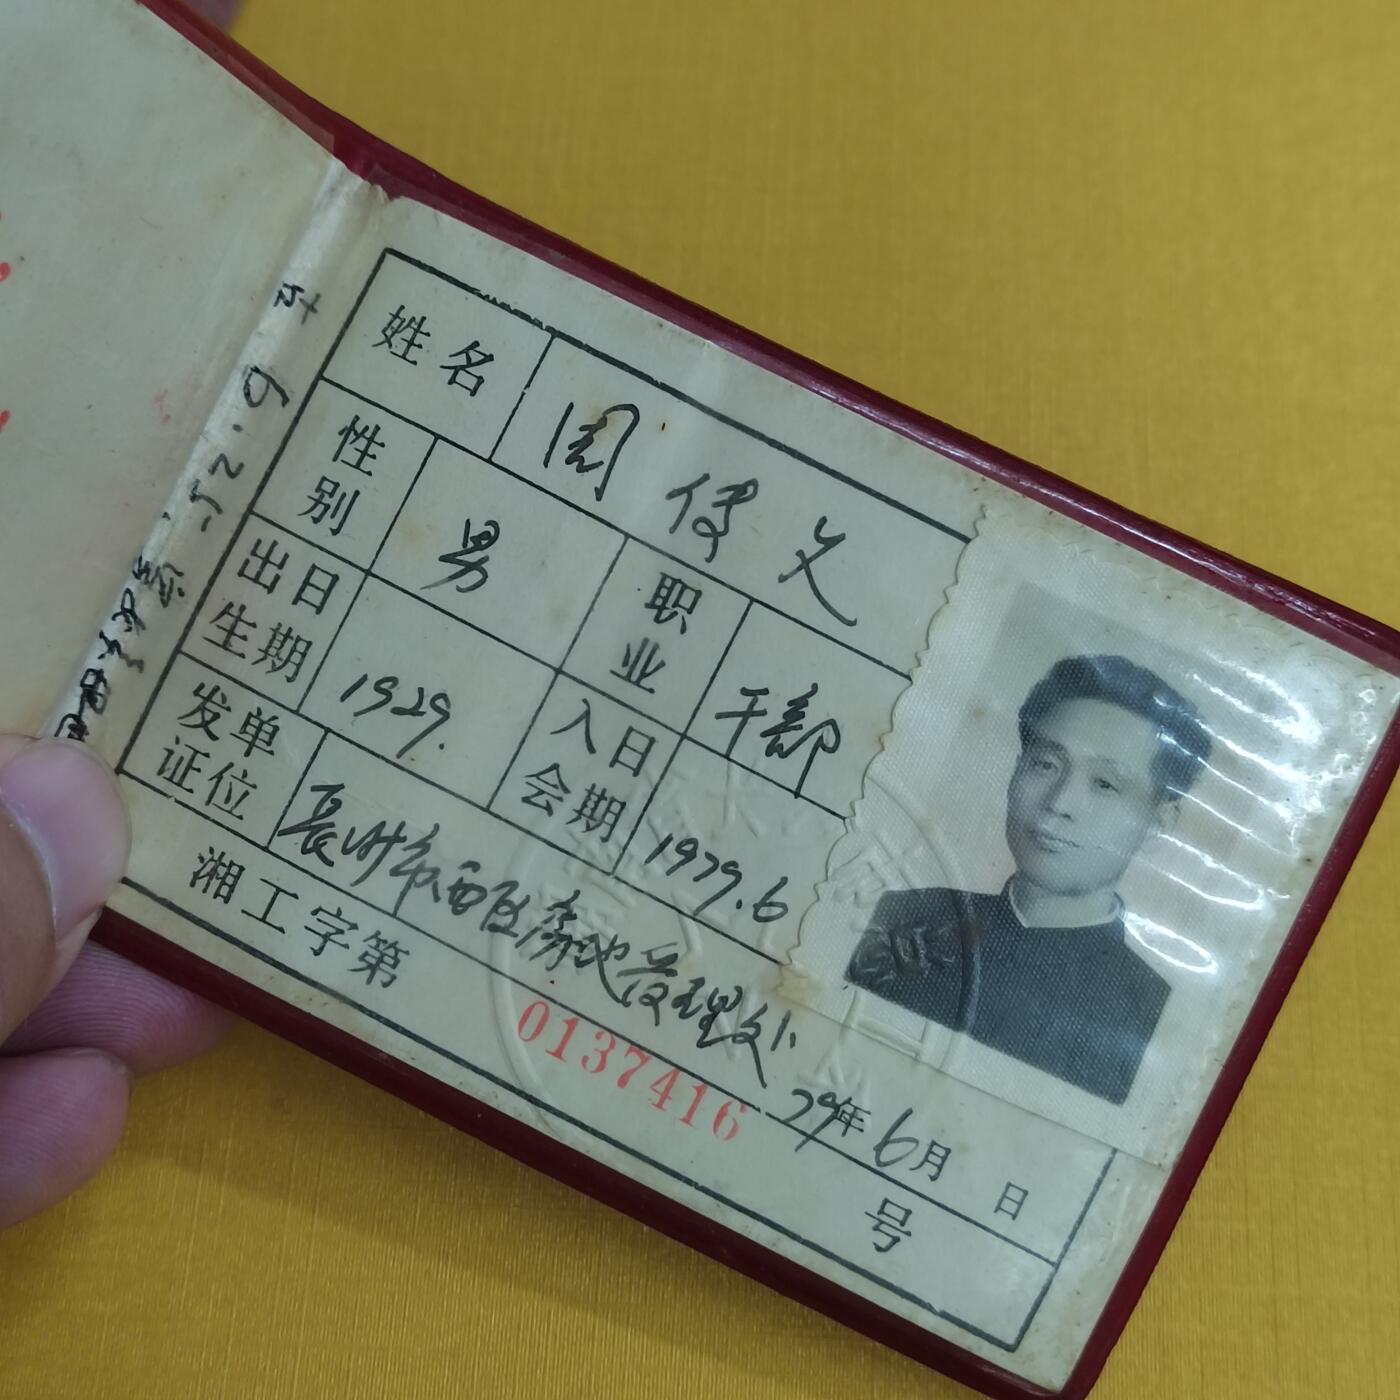 姓名 周俊文
性别 男 职业 干部
出生日期 1929. 入会日期 1979.6
发证单位 长沙市西区房地管理处 79年6月 日
湘工字第 0137416 号